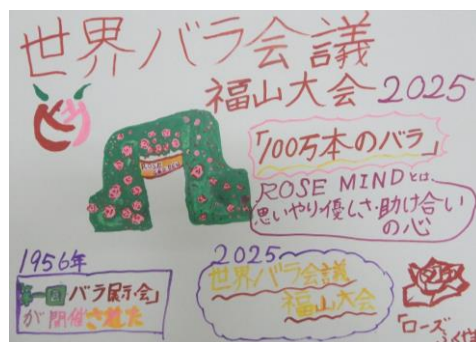 世界バラ会議
福山大会2025
「100万本のバラ」
ROSE MINDとは、
思いやり・優しさ・助け合い
の心
1956年
第一回バラ展示会」
が開催された
2025
世界バラ会議
福山大会
「ローズ